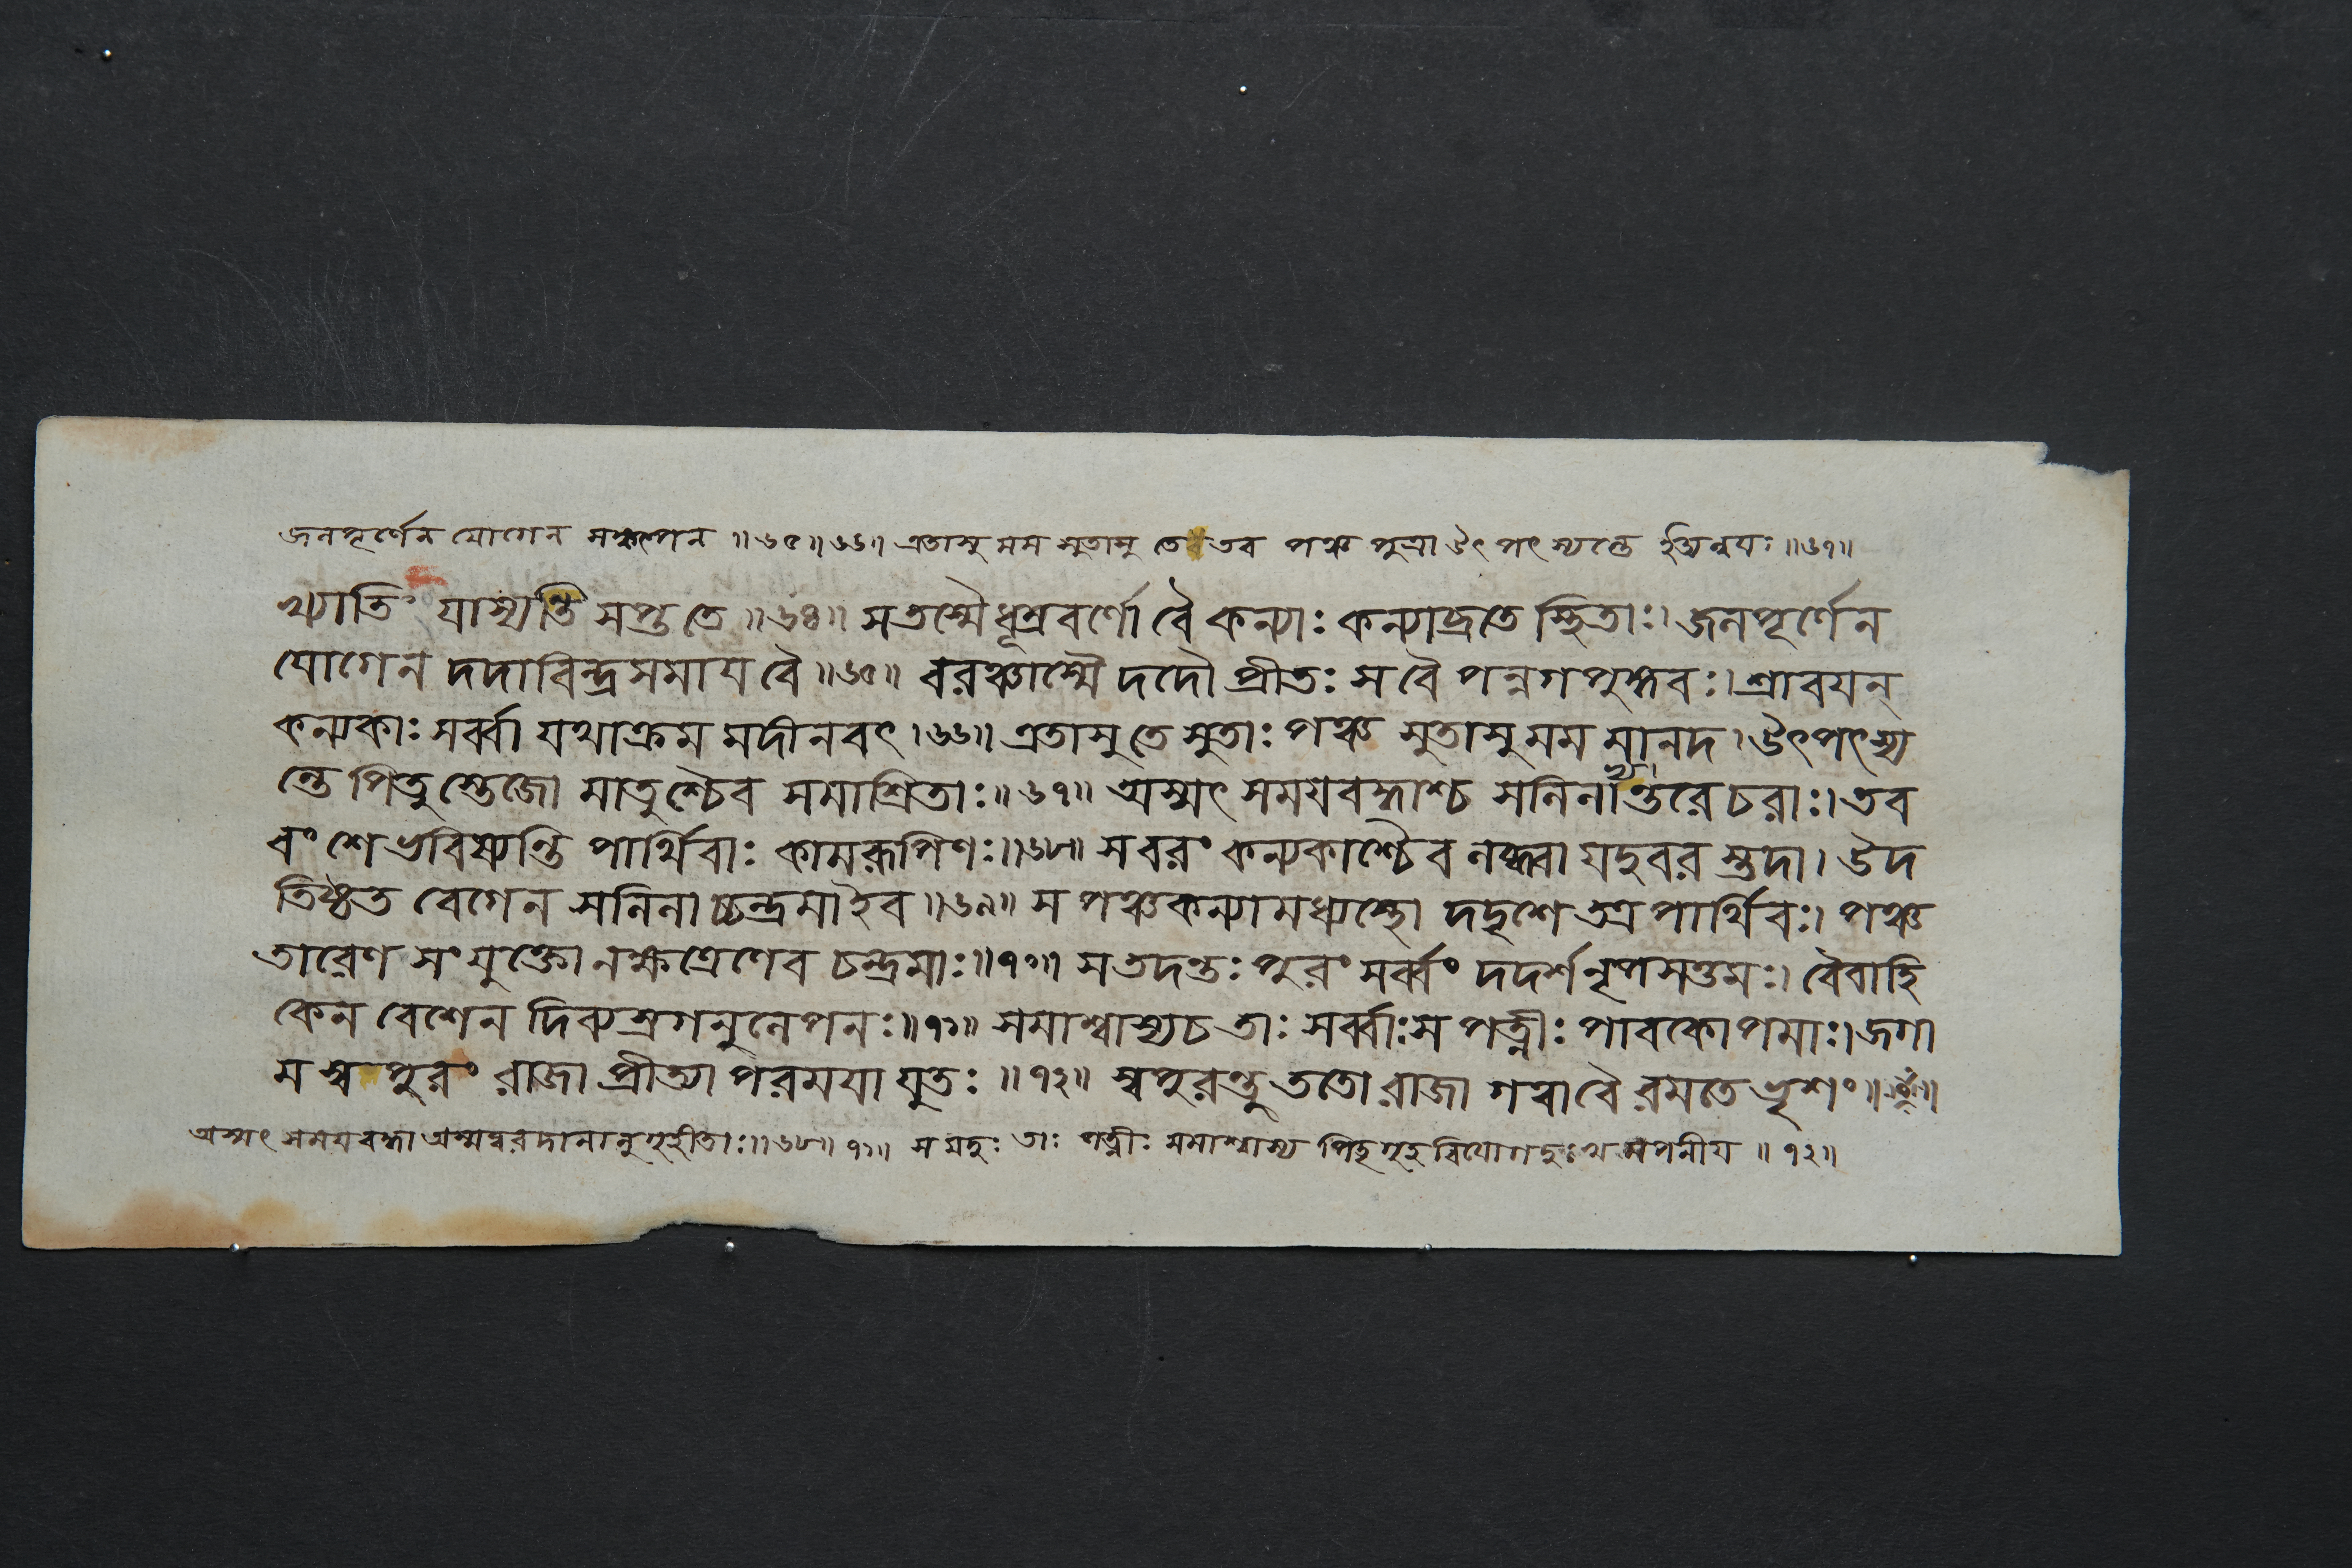 জলপূর্ণেন যোগেন সঙ্কল্পেন ॥৬৫॥৬৬॥ এতাসু মম সুতাসু তে তব পঞ্চ পুত্রা উৎপৎস্যন্তে ইত্যন্বয়ঃ ॥৬৭॥
খ্যাতিং যাস্যন্তি সপ্ত তে ॥৬৪॥ স তস্মৈ ধূম্রবর্ণো বৈ কন্যাঃ কন্যাব্রতে স্থিতাঃ। জলপূর্ণেন
যোগেন দদাবিন্দ্রসমায় বৈ ॥৬৫॥ বরঞ্চাস্মৈ দদৌ প্রীতঃ স বৈ পন্নগপুঙ্গবঃ। শ্রাবয়ন্
কন্যকাঃ সর্ব্বা যথাক্রম মদীনবৎ। ৬৬॥ এতাসু তে সুতাঃ পঞ্চ সুতাসু মম মানদ। উৎপৎস্য
ন্তে পিতুস্তেজো মাতুশ্চৈব সমাশ্রিতাঃ॥ ৬৭॥ অস্মৎ সময়বদ্ধাশ্চ সলিলাভ্যন্তরে চরাঃ। তব
বংশে ভবিষ্যন্তি পার্থিবাঃ কামরূপিণঃ॥৬৮॥ স বরং কন্যকাশ্চৈব লব্ধ্বা যদুবরস্তদা। উদ
তিষ্ঠত বেগেন সলিলাচ্চন্দ্রমা ইব ॥৬৯॥ স পঞ্চকন্যামধ্যস্থো দদৃশে তত্র পার্থিবঃ। পঞ্চ
তারেণ সংযুক্তো নক্ষত্রেণেব চন্দ্রমাঃ॥৭০॥ স তদন্তঃপুরং সর্ব্বং দদর্শ নৃপসত্তমঃ। বৈবাহি
কেন বেশেন দিব্যস্রগনুলেপনঃ॥৭১॥ সমাশ্বাস্য চ তাঃ সর্ব্বাঃ স পত্নীঃ পাবকোপমাঃ। জগা
ম স্বপুরং রাজা প্রীত্যা পরময়া যুতঃ ॥৭২॥ স্বপুরন্তু ততো রাজা গত্বা বৈ রমতে ভৃশং॥
অস্মৎ সময়বদ্ধা অস্মদ্বরদানানুগৃহীতাঃ॥৬৮॥ ৭১॥ স যদুঃ তাঃ পত্নীঃ সমাশ্বাস্য পিতৃগৃহবিয়োগদুঃখমপনীয় ॥ ৭২॥